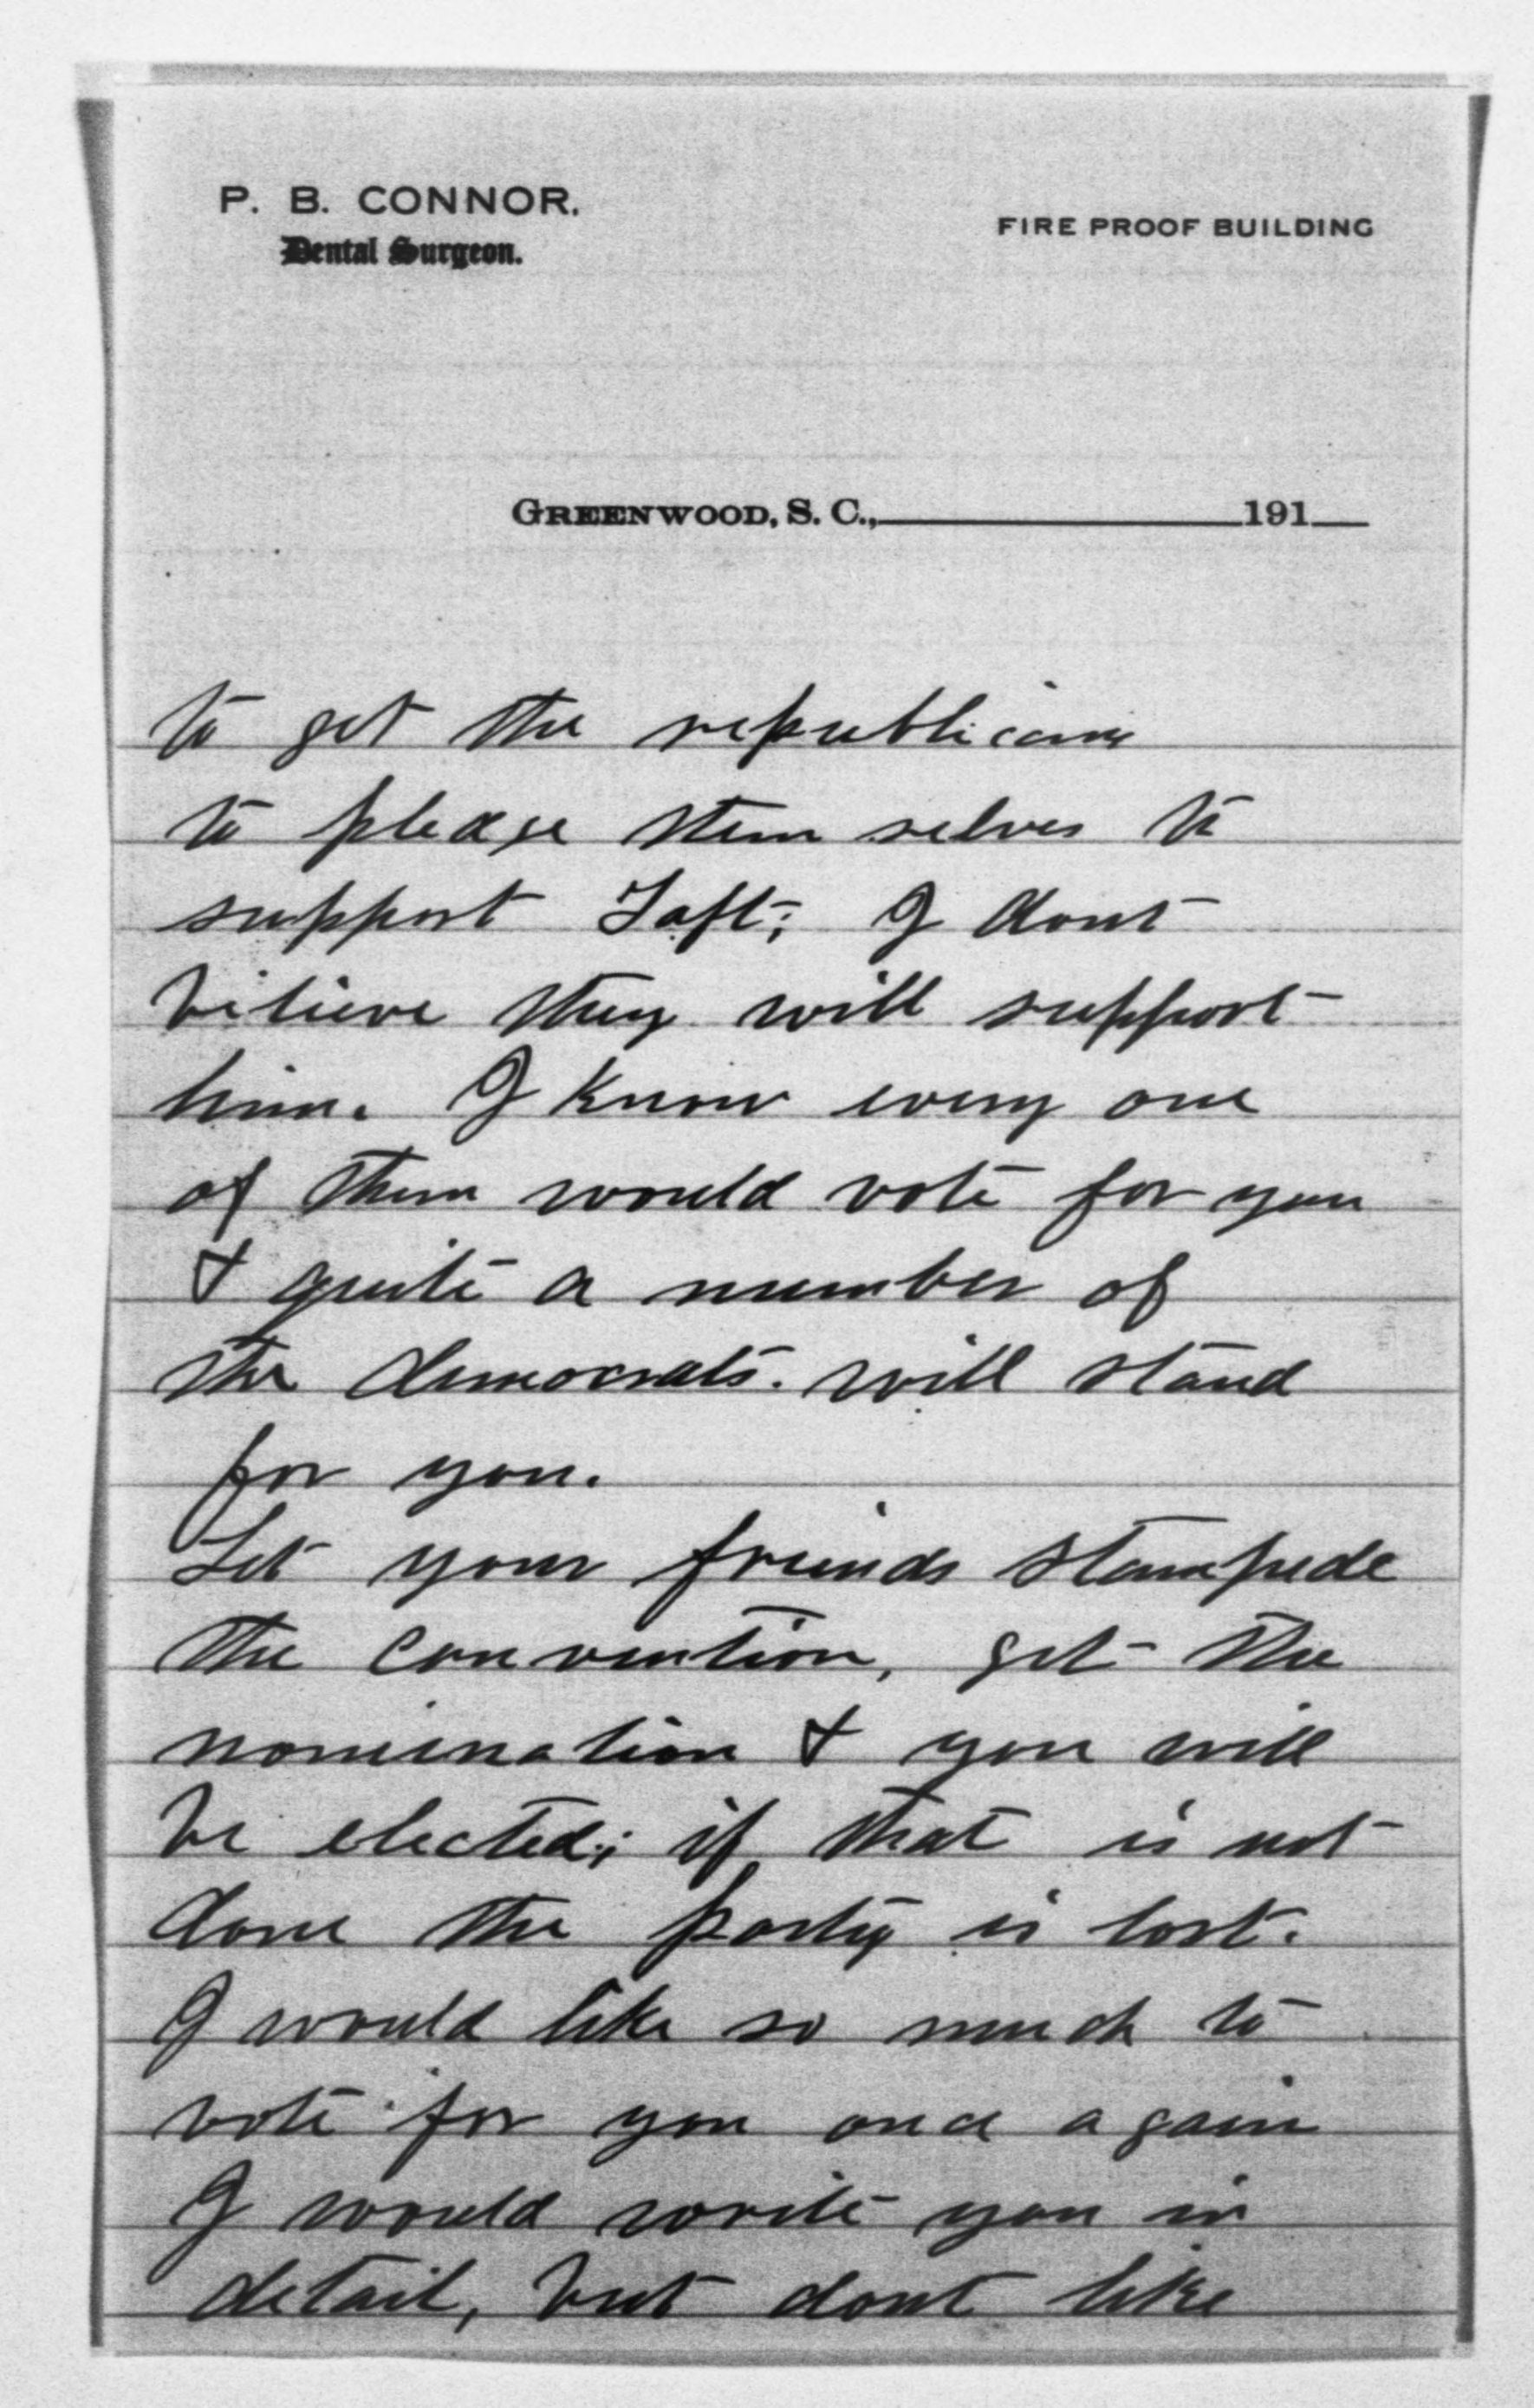 P. B. CONNOR.
Dental Surgeon.
FIRE PROOF BUILDING
GREENWOOD, S. C., 191
to get the republicans
to pledge them selves to
support Taft; I dont
believe they will support
him. I know every one
of them would vote for you
& quite a number of
the democrats. will stand
for you.
Let your friends stampede
the convention, get the
nomination & you will
be elected; if that is not
done the party is lost.
I would like so much to
vote for you once again
I would write you in
detail, but dont like